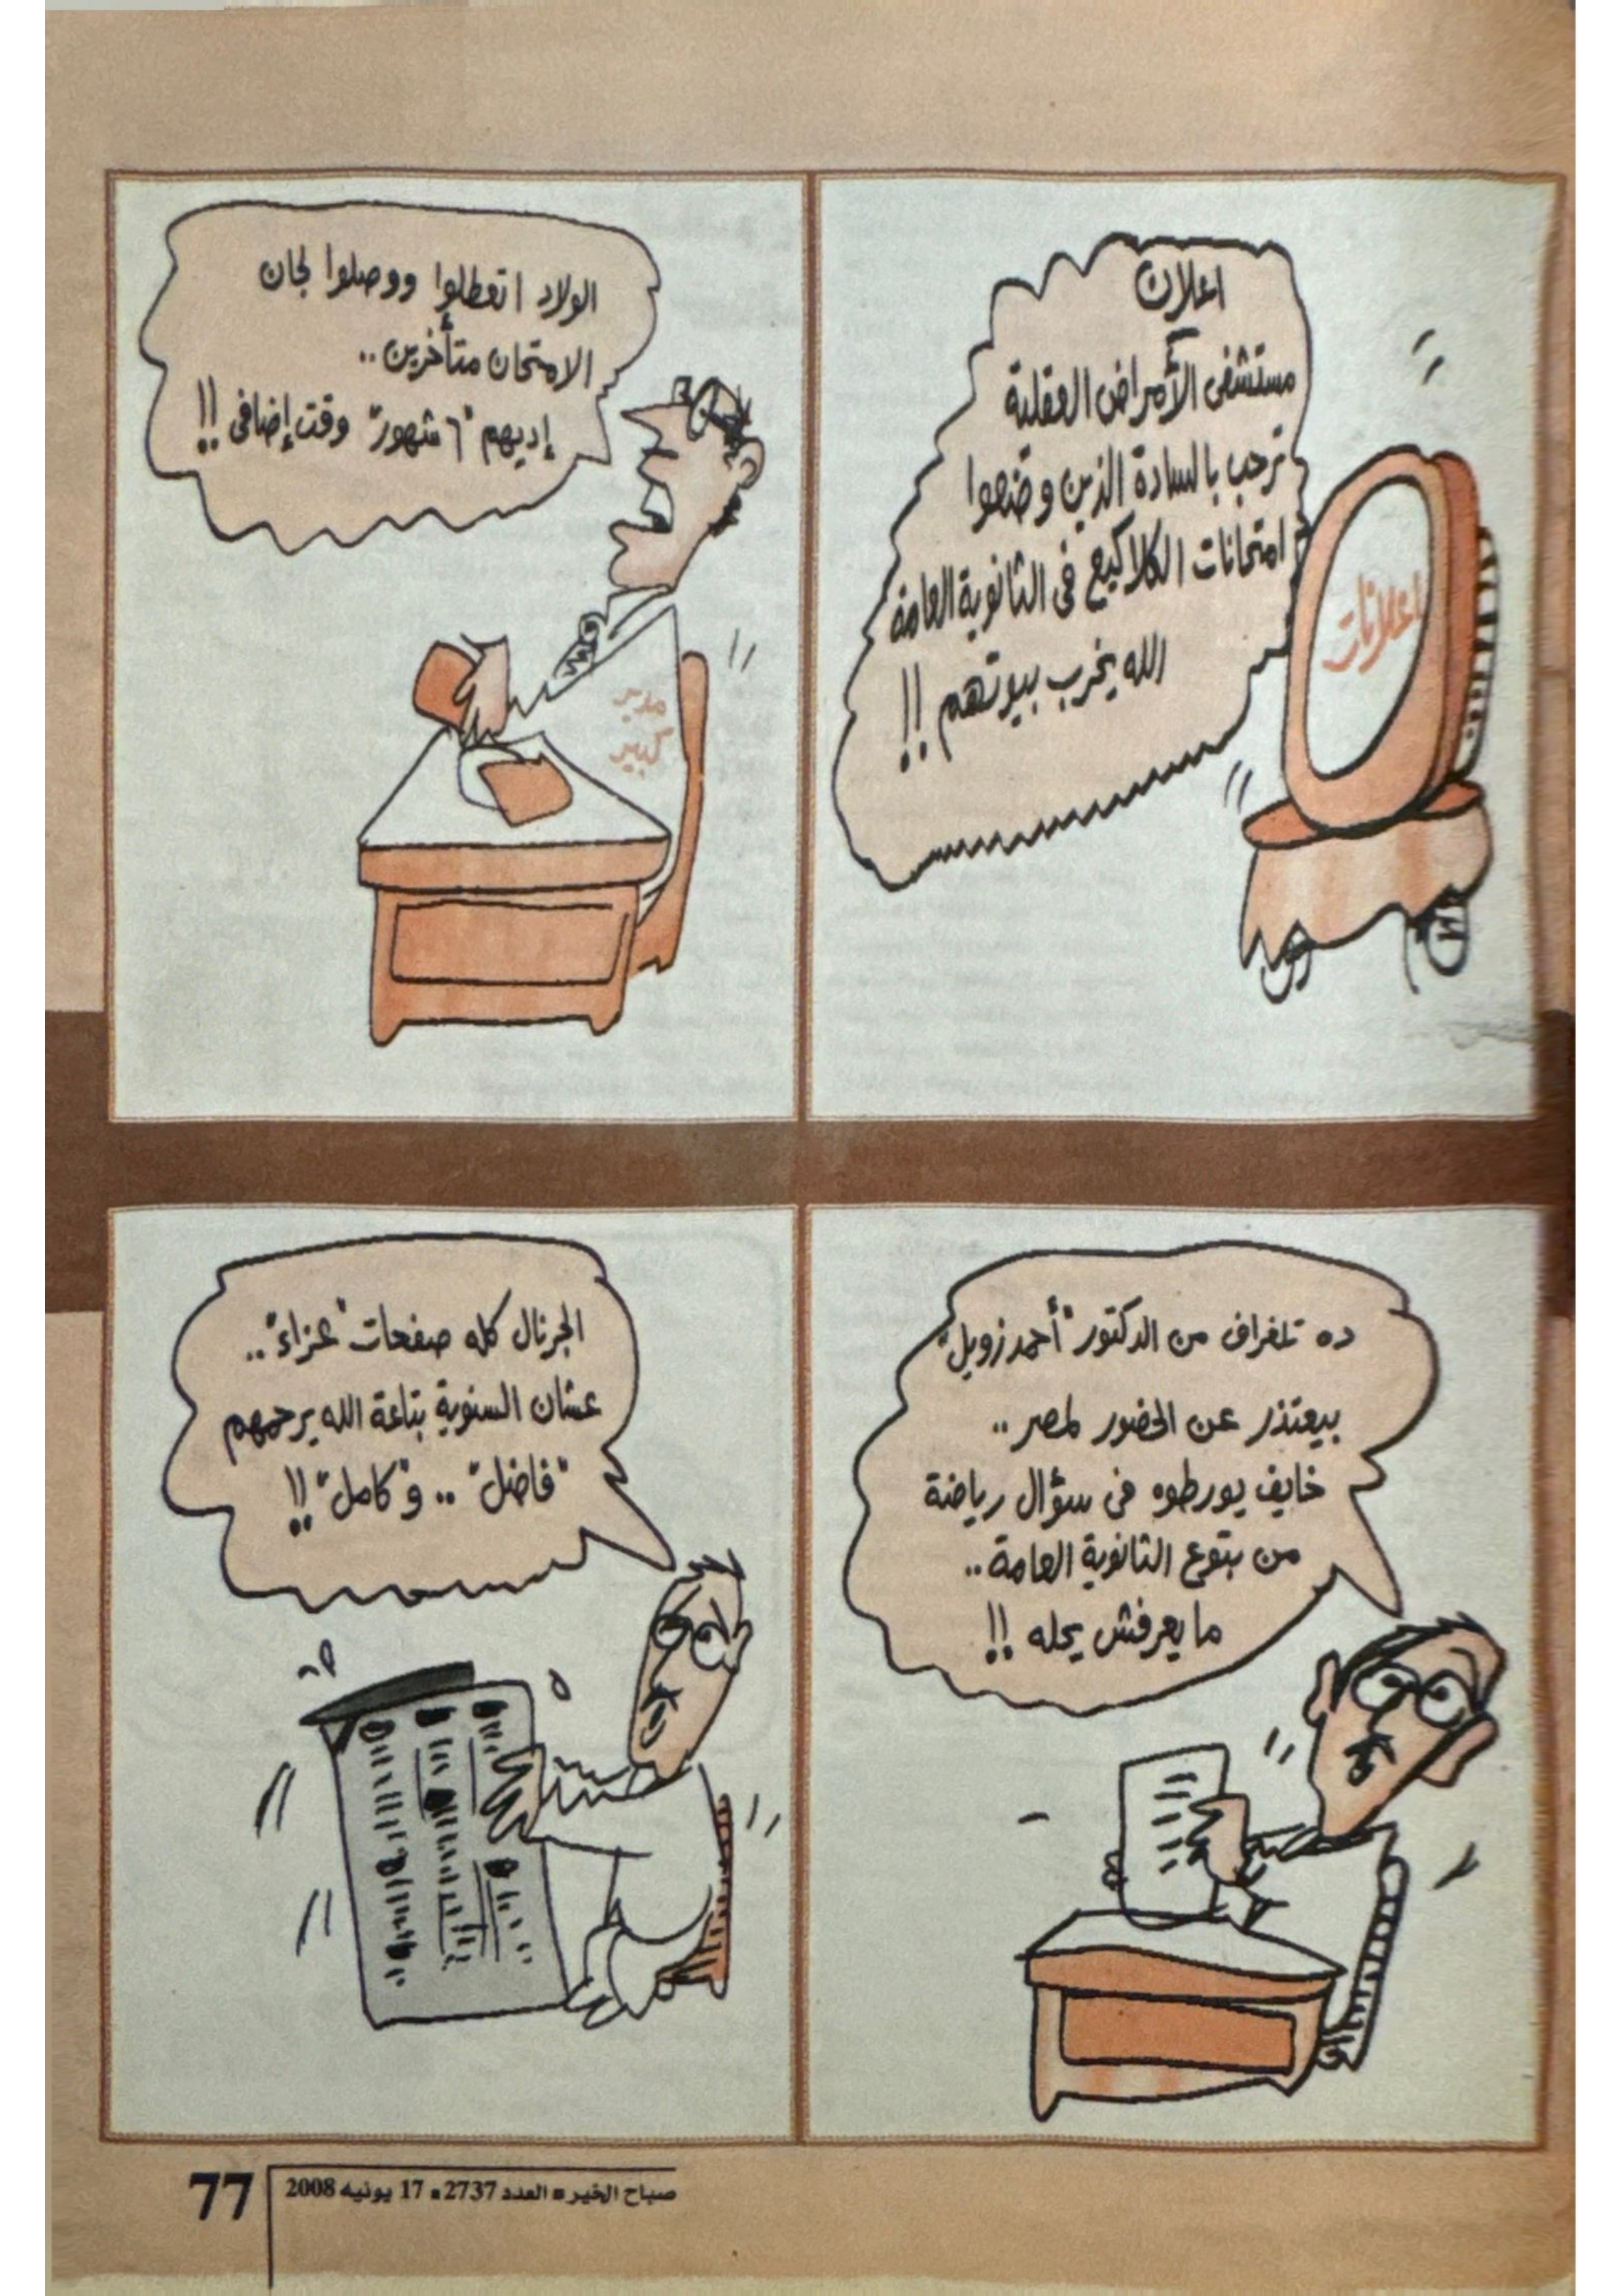 اعلان
مستشفى الأمراض العقلية
ترحب بالسادة الذين وضعوا
امتحانات الكلاكيع فى الثانوية العامة
الله يخرب بيوتهم !!
اعلانات
الولاد اتعطلوا ووصلوا لجان
الامتحان متأخرين..
إديهم "٦ شهور" وقت إضافى !!
مدير
كبير
ده تلغراف من الدكتور "أحمد زويل"
بيعتذر عن الحضور لمصر..
خايف يورطوه فى سؤال رياضة
من بتوع الثانوية العامة..
ما يعرفش يحله !!
الجرنال كله صفحات "عزاء"..
عشان السنوية بتاعة الله يرحمهم
"فاضل" .. و"كامل" !!
77
صباح الخير ■ العدد 2737 ■ 17 يونيه 2008